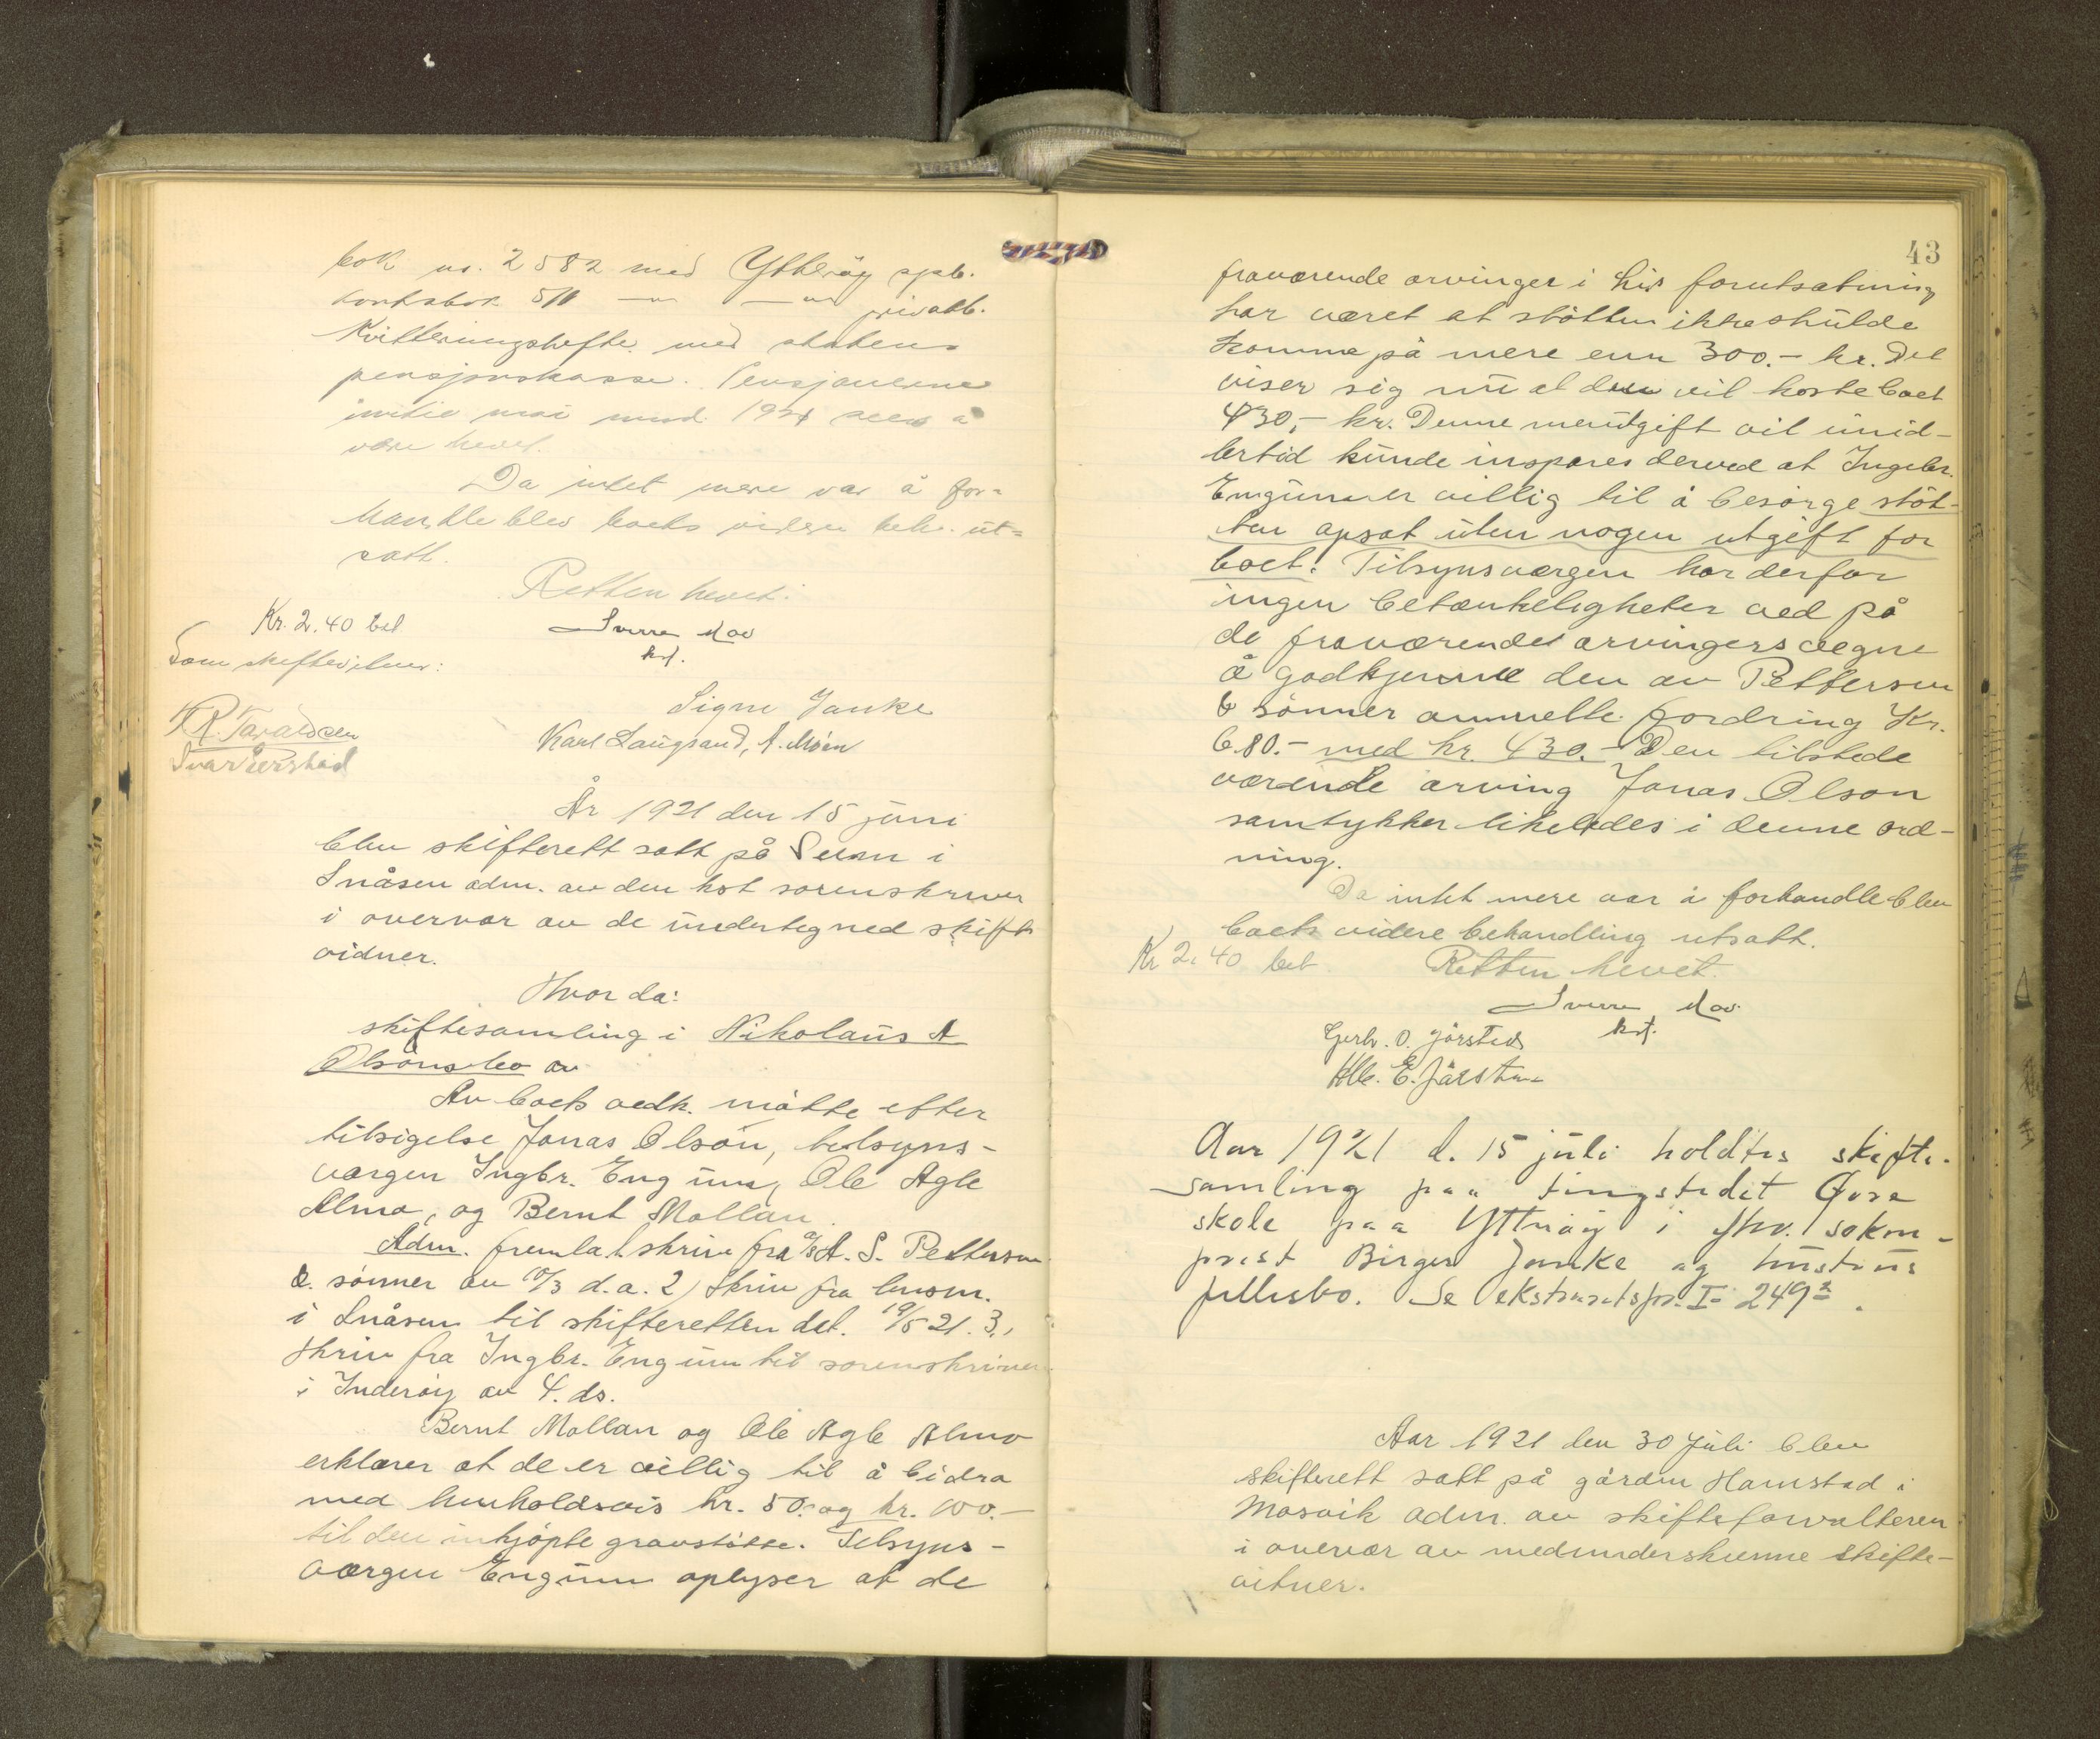 bok nr. 2582 med Ytterøy spb.
kontrabok 511 — " — " privatb.
Kvitteringshefte med statens
pensjonskasse. Pensjonene
intil mai mnd. 1921 sees å
være hevet.
Da intet mere var å for-
handle blev boets videre beh. ut-
satt.
Retten hevet.
Kr. 2.40 bet
Sverre Mov
kst.
Som skiftevitner:
Signe Janke
Karl Laugsand, A. Moen
År 1921 den 15 juni
blev skifterett satt på Seem i
Snåsen adm. av den kst sorenskriver
i overvær av de undertegned skift
vidner.
Hvor da:
skiftesamling i Nikolaus A
Olsøns bo av
Av boets vedk. møtte efter
tilsigelse Jonas Olsøn, tilsyns-
vergen Ingbr. Engum, Ole Agle
Almo, og Bernt Mollan.
Adm. fremla 1 skriv fra A. S. Pettersen
& sønner av 10/3 d.a. 2) Skriv fra lensm.
i Snåsen til skifteretten dat. 19/5 21. 3.,
skriv fra Ingbr. Engum til sorenskriver
i Inderøy av 4. ds.
Bernt Mollan og Ole Agle Almo
erklærer at de er villig til å bidra
med henholdsvis kr. 50.- og kr. 100.-
til den inkjøpte gravstøtte. Tilsyns-
vergen Engum oplyser at de
43
fraværende arvinger i sin forutsætning
har været at støtten ikke skulde
komme på mere enn 300.- kr. Det
viser sig nu at den vil koste boet
430,- kr. Denne merutgift vil imid-
lertid kunde inspares derved at Ingebr.
Engum er villig til å besørge støt-
ten opsat uten nogen utgift for
boet. Tilsynsvergen har derfor
ingen betænkeligheter ved på
de fraværendes arvingers vegne
å godkjenne den av Pettersen
& sønner anmeldte fordring Kr.
680.- med kr. 430.- Den tilstede
værende arving Jonas Olson
samtykker likeledes i denne ord-
ning.
Da intet mere var å forhandle blev
boets videre behandling utsatt.
Kr 2.40 bet
Retten hevet.
Sverre Mov
kst.
Gerh. O. Jørstad
E. Jørstad
Aar 1921 d. 15 juli holdtes skifte-
samling paa tingstedet
skole paa Ytterøy i fhv. sokne-
prest Birger Janke og hustrus
fellesbo. Se ekstraretspr. I 249
Aar 1921 den 30 juli blev
skifterett satt på gården Hamstad i
Mosvik adm. av skifteforvalteren
i overvær av medunderskrevne skifte-
vitner.